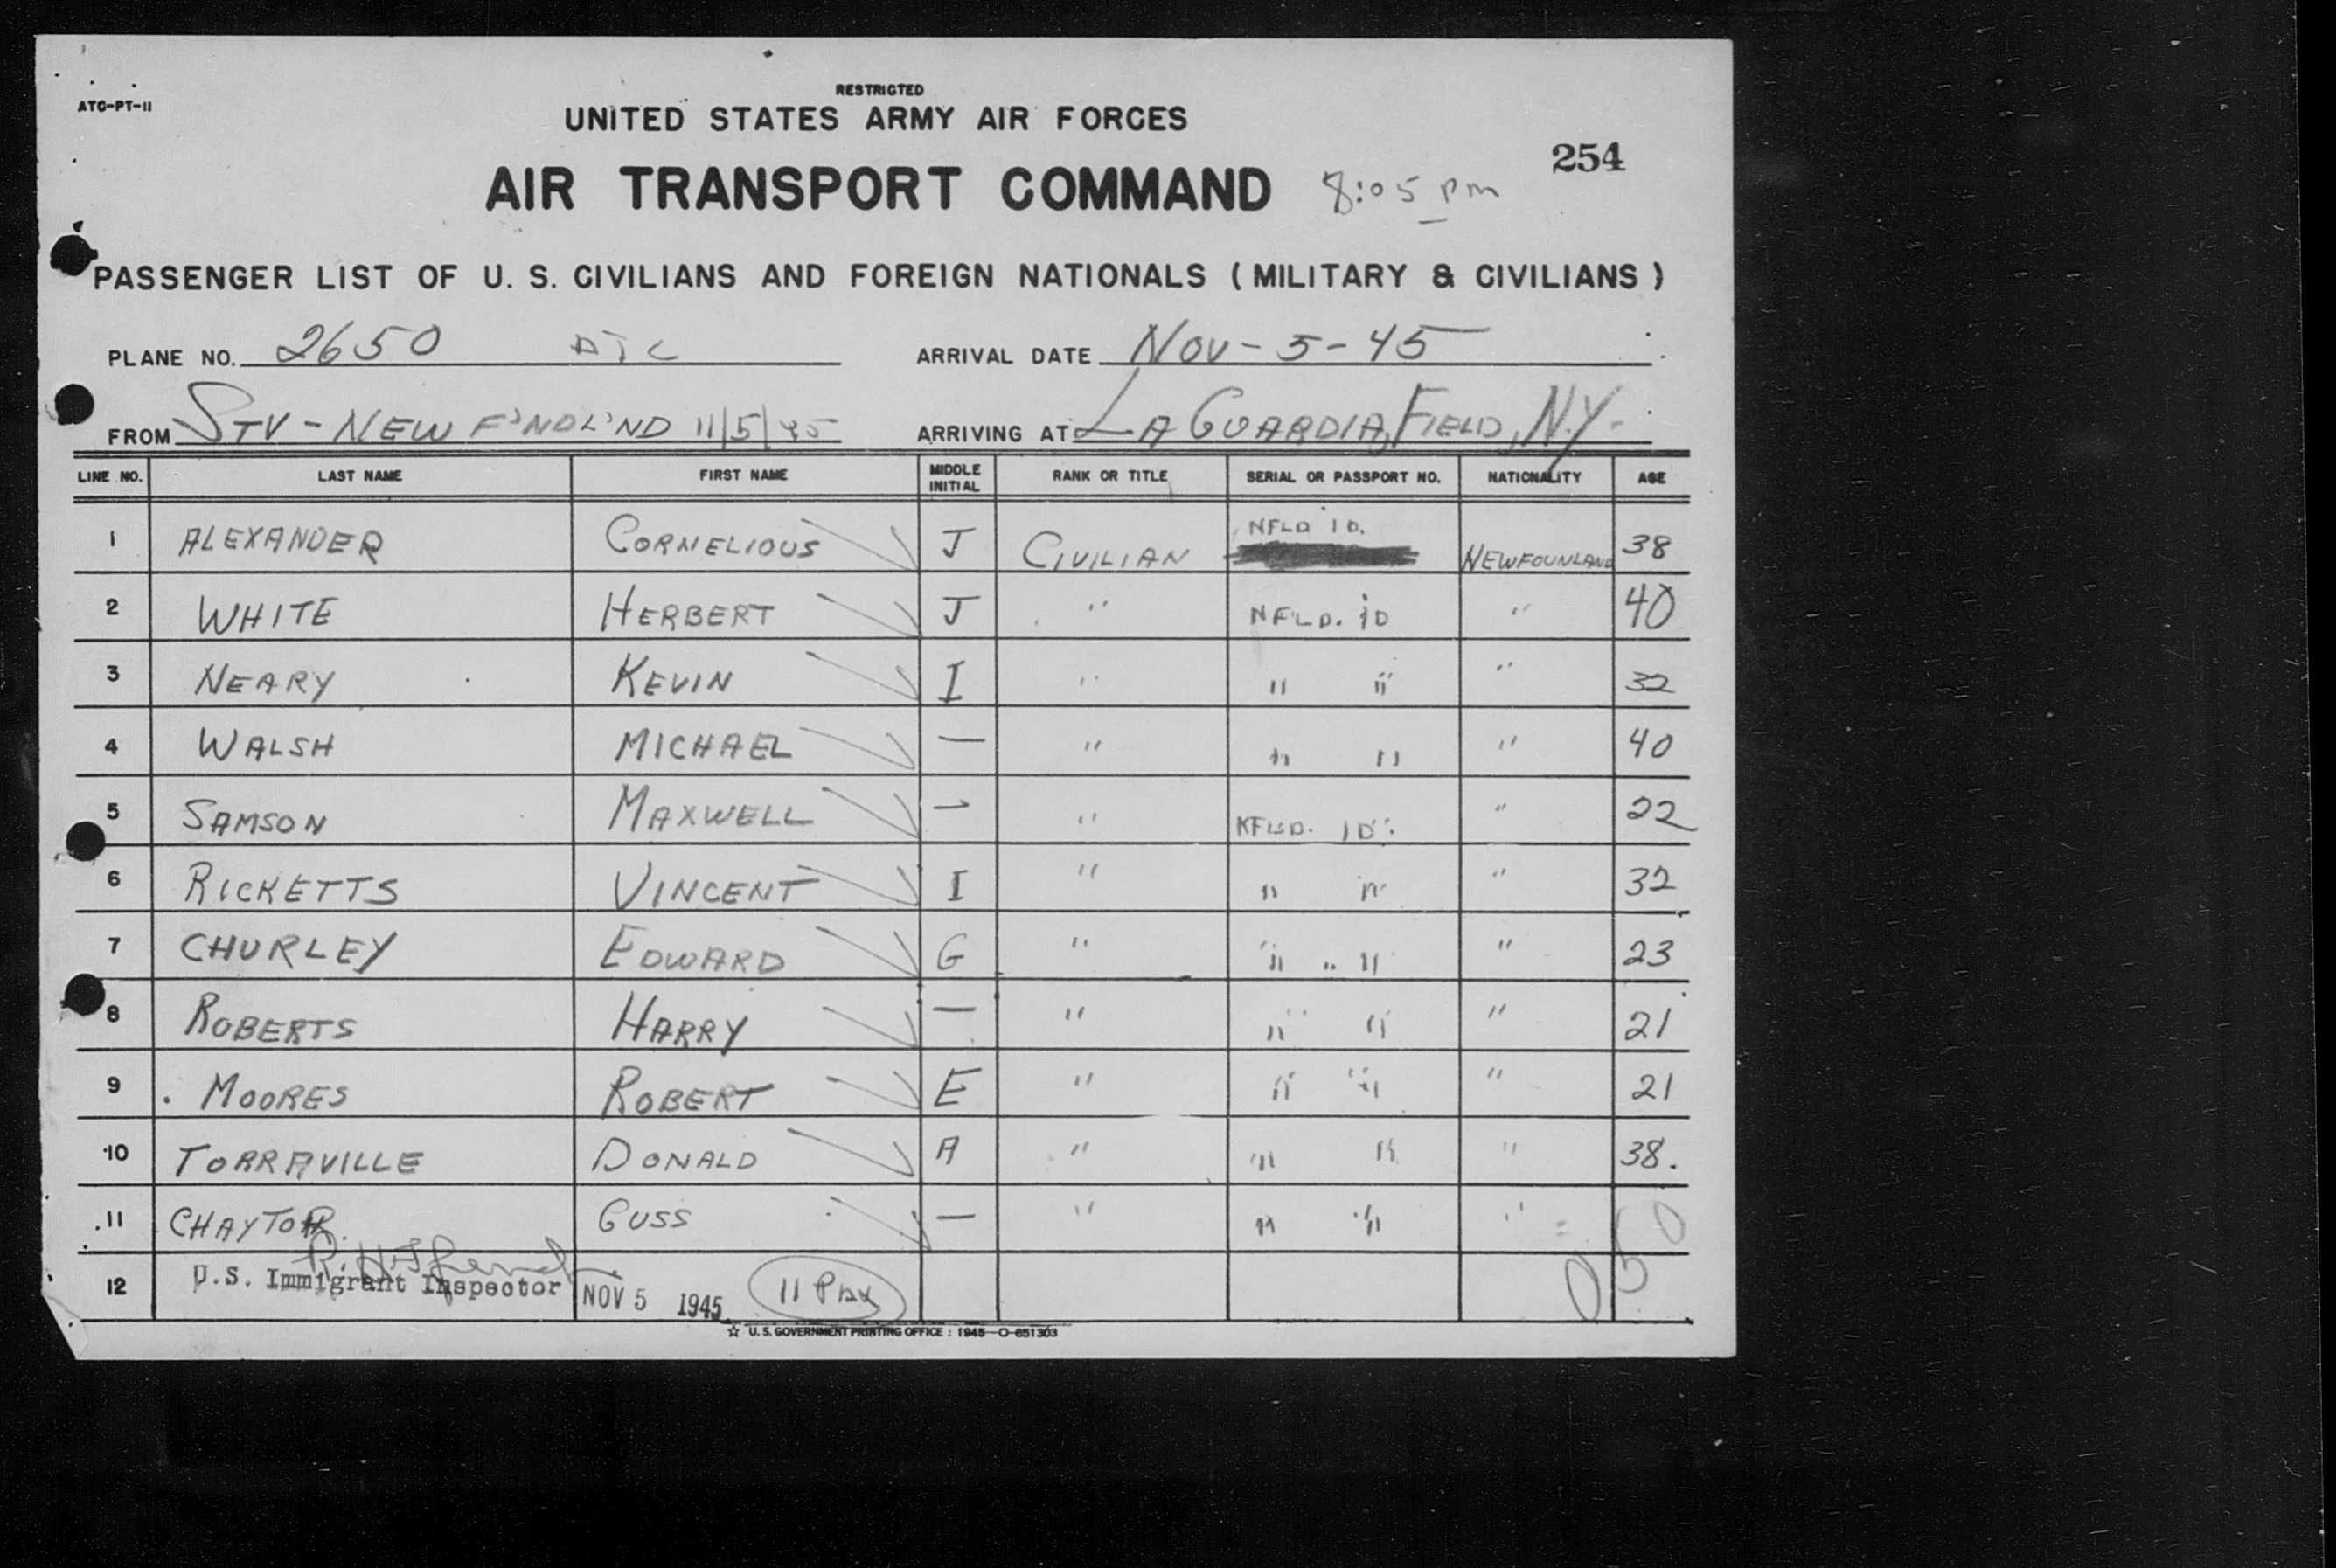 RESTRICTED
ATC-PT-11
UNITED STATES ARMY AIR FORCES
254
AIR TRANSPORT COMMAND 8:05 pm
PASSENGER LIST OF U. S. CIVILIANS AND FOREIGN NATIONALS ( MILITARY & CIVILIANS )
PLANE NO. 2650 ATC ARRIVAL DATE NOV-5-45
FROM STV - NEW F'NDL'ND 11/5/45 ARRIVING AT LA GUARDIA, FIELD, N.Y.
LINE NO. LAST NAME FIRST NAME MIDDLE INITIAL RANK OR TITLE SERIAL OR PASSPORT NO. NATIONALITY AGE
1 ALEXANDER CORNELIOUS J CIVILIAN NFLD ID. NEWFOUNLAND 38
2 WHITE HERBERT J " NFLD. ID " 40
3 NEARY KEVIN I " " " " 32
4 WALSH MICHAEL — " " " " 40
5 SAMSON MAXWELL — " NFLD. ID. " 22
6 RICKETTS VINCENT I " " " " 32
7 CHURLEY EDWARD G " " " " 23
8 ROBERTS HARRY — " " " " 21
9 MOORES ROBERT E " " " " 21
10 TORRAVILLE DONALD A " " " " 38.
11 CHAYTOR GUSS — " " " "
12 U.S. Immigrant Inspector NOV 5 1945 11 Pax
☆ U. S. GOVERNMENT PRINTING OFFICE : 1945—O-651303